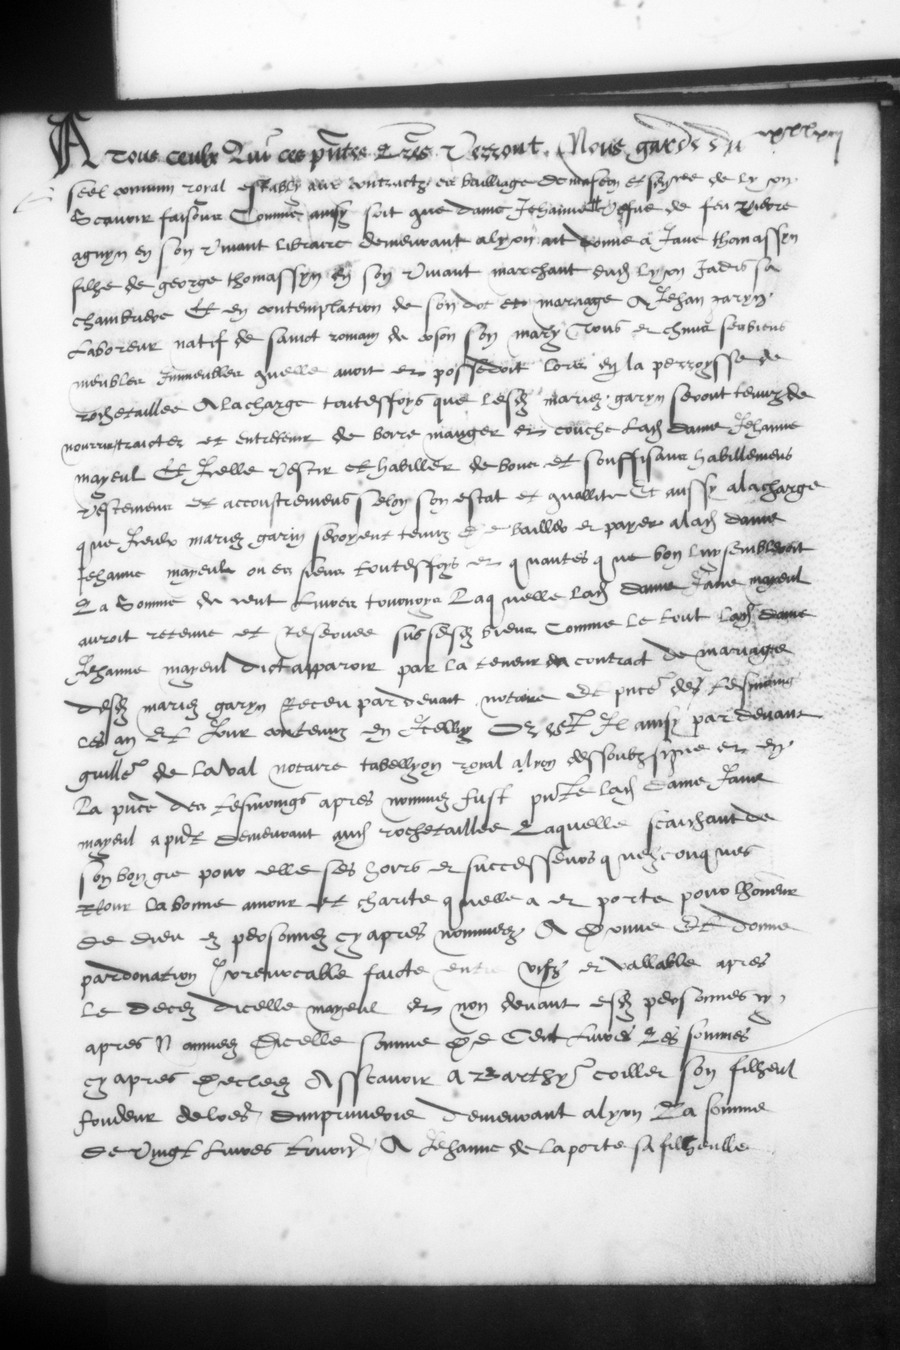 A tous ceulx Qui ces pntes Lres Verront. Nous garde du
seel commun royal estably aux contractz es bailliage de mascon et sen[...]ee de lyon
Scavoir faisons Comme ainsy soit que dame Jehanne Vefve de feu pierre
aguyn en son vivant libraire demeurant a lyon ait donne a Jane thomassyn
filhe de george thomassyn en son vivant marchant dud lyon Jadis sa
chambriere Et en contemplation de son dot et mariage A Jehan garyn
Laboreur natif de sainct romain de coson son mary tous et chuns ses biens
meubles Immeubles quelle avoit et possedoit lors en la perroysse de
rochetaillee A la charge touteffoys que lesd mariez garyn seront tenuz de
nourrir traicter et entretenir de boire manger et couche lad dame Jehanne
mayeul Et Icelle vestir et habiller de bons et souffisans habillemens
vestemens et accoustremens selon son estat et quallite Et aussy a la charge
que Iceux mariez garin seroyent tenuz de bailler et payer a lad dame
Jehanne mayeule ou es siens touteffoys et quantes que bon luy sembleroit
La Somme de cent Livres tournoys Laquelle lad dame Jane mayeul
auroit retenue et reservee sus sesd biens Comme le tout lad dame
Jehanne mayeul dict apparoir par la teneur du contract de mariage
desd mariez garyn Receu par devant notaire Et pnce des tesmoings
les an Et Jour contenuz en Icelluy Or est Il ainsy par devant
guille de laval notaire tabellyon royal a lyon dessoubz signe et en
La pnce des tesmoings apres nommez fust pnte lad dame Jane
mayeul a pnt demeurant aud rochetaillee Laquelle scaichant de
son bon gre pour elle ses hoirs et successeurs quelzconques
Pour la bonne amour et charite quelle a et porte pour lhonneur
de dieu es personnes cy apres nommez A Donne Et donne
par donation Irrevocable faicte entre vifz et vallable apres
le decez dicelle mayeul et non devant esd personnes cy
apres Nommez Dicelle somme De Cent Livres Les sommes
cy apres Declerez Assavoir A Barthy coillet son filheul
fondeur de lres dimprimerie demeurant a lyon La somme
de vingt Livres tourn A Jehanne de la porte sa filheulle